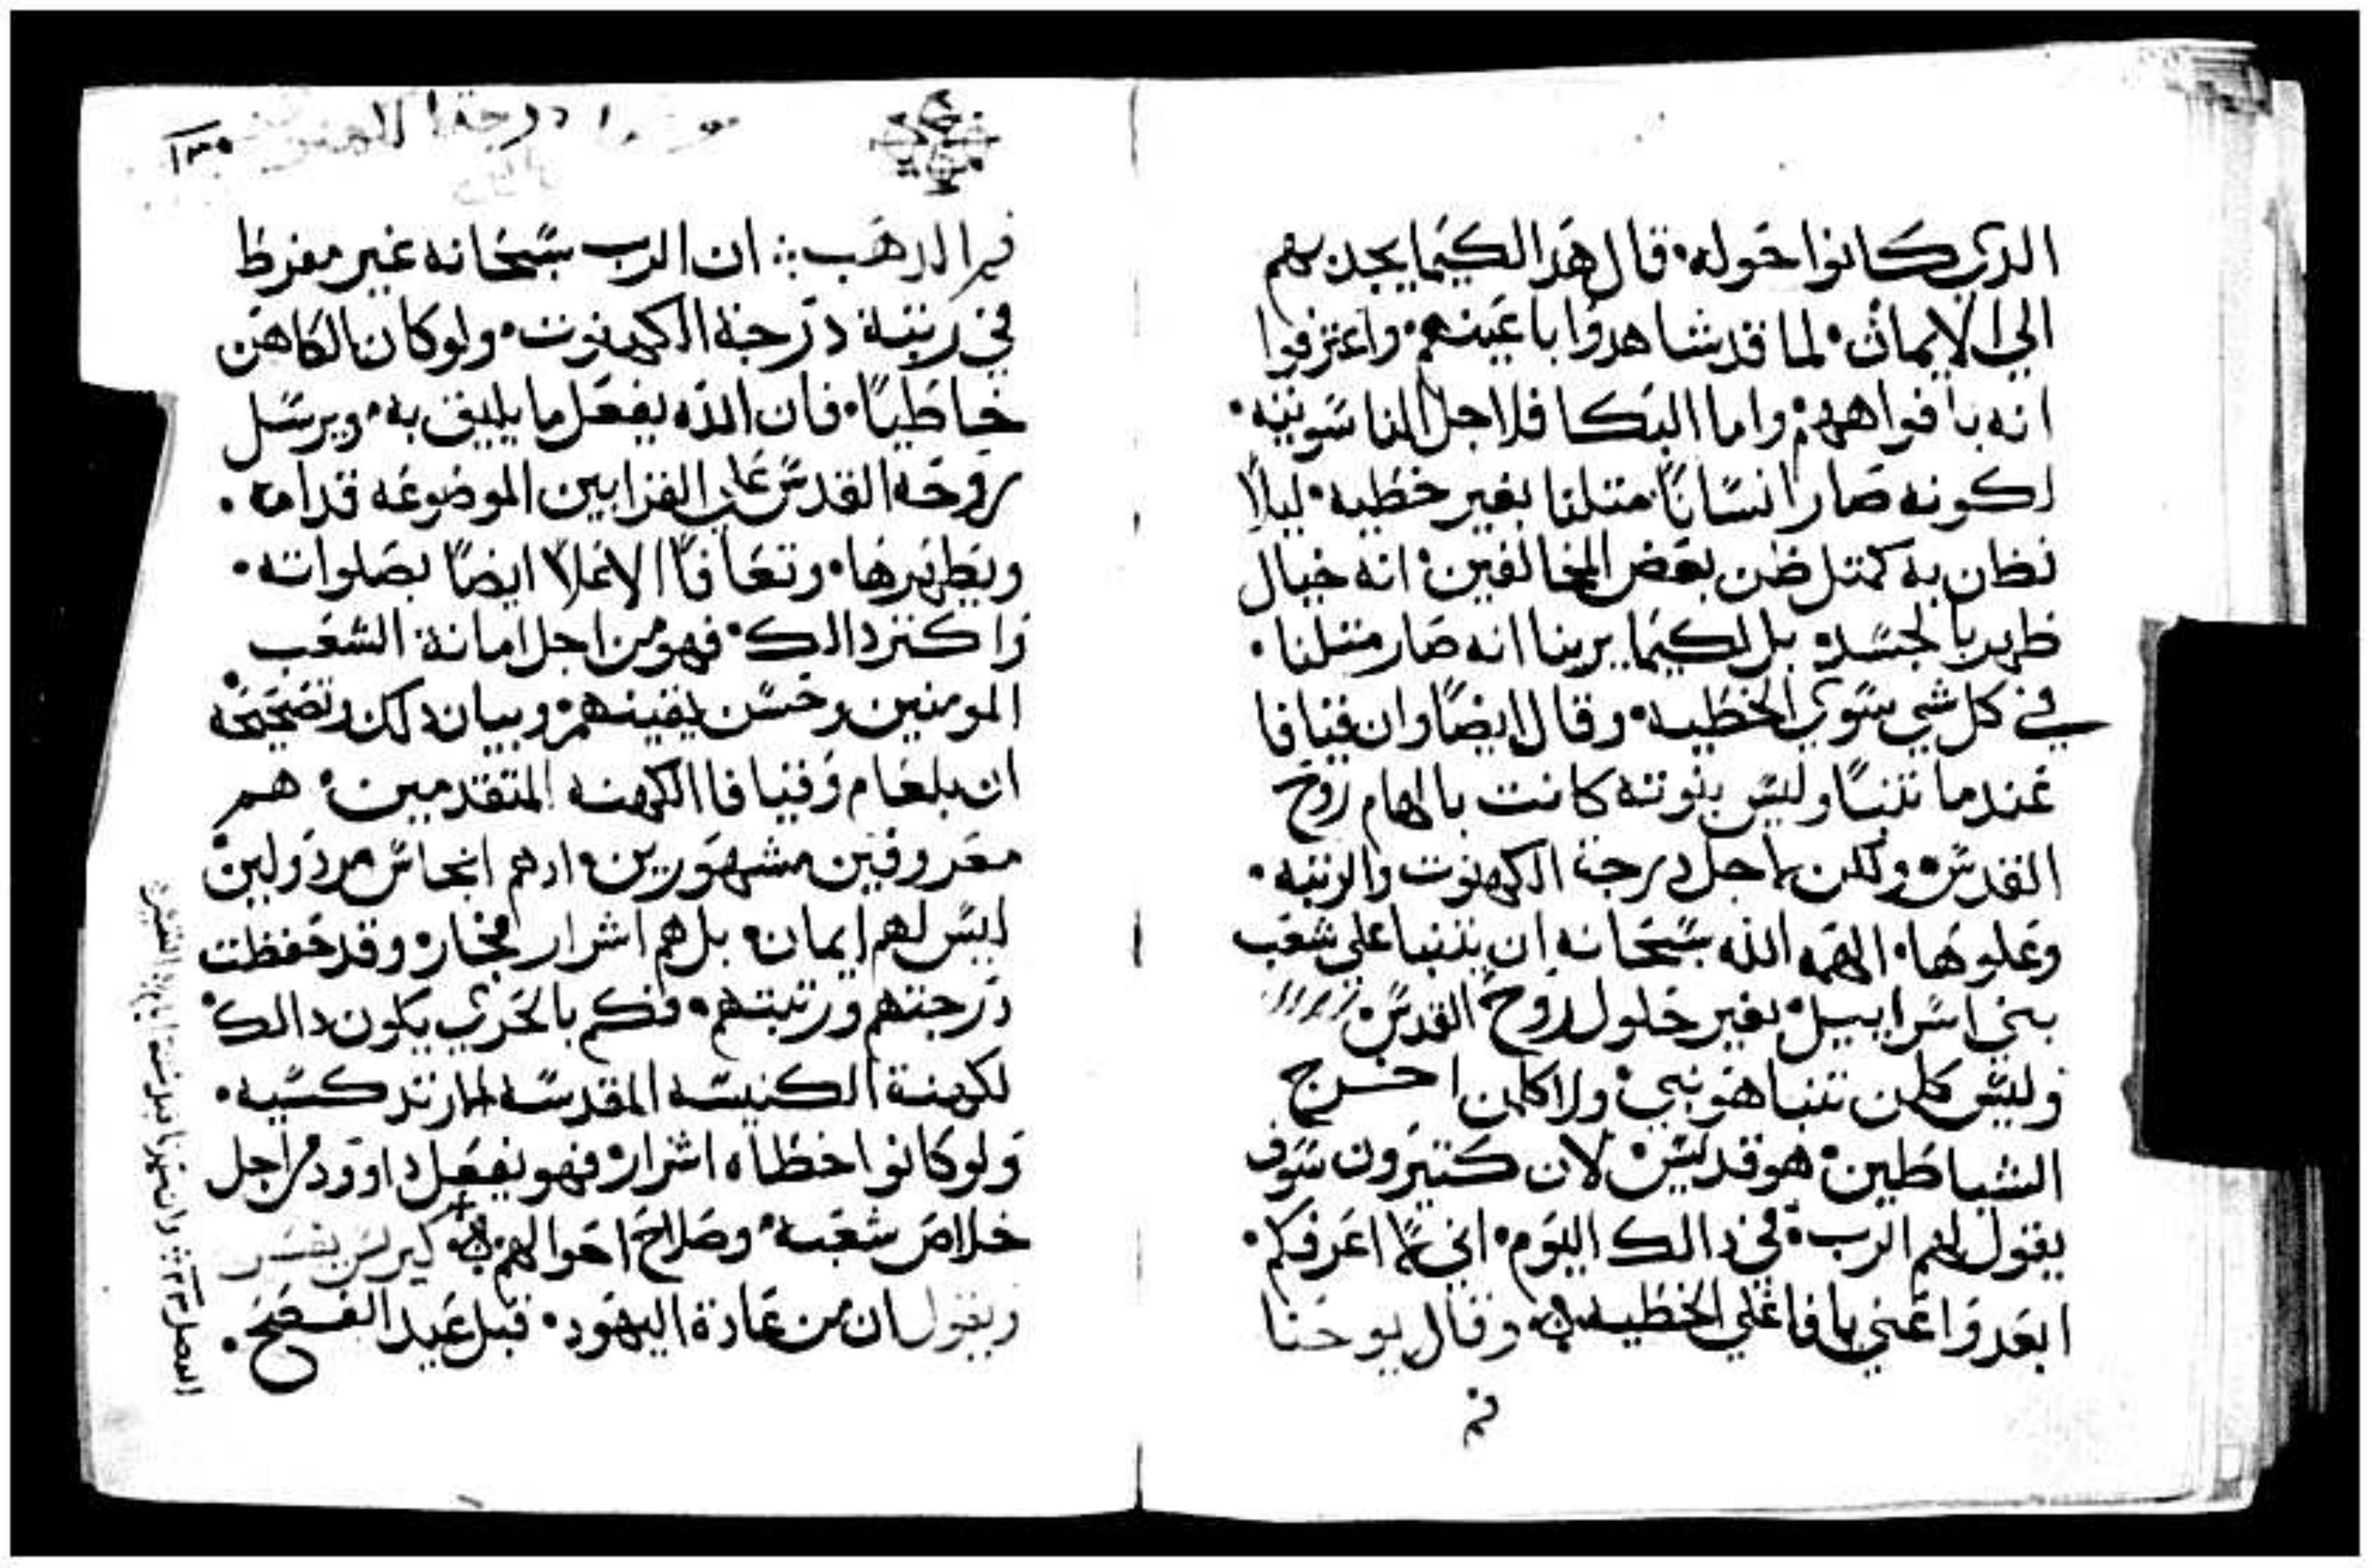 الدي كانوا حوله٠ قال هدا لكيما يجدبهم
الي الايمان٠ لما قد شاهدوا باعينهم٠ واعترفوا
انه بافواههم٠ واما البكا فلاجل الناسوتيه٠
لكونه صار انسانًا متلنا بغير خطيه٠ ليلا
نظن به كمتل ظن بعض المخالفين٠ انه خيال
ظهر بالجسد٠ بل لكيما يرينا انه صار متلنا٠
في كل شي سوي الخطيه٠ وقال ايضًا وان قيافا
عندما تنبا وليس بنوته كانت بالهام روح
القدس٠ ولكن لاجل درجة الكهنوت والرتبه٠
وعلوها٠ الهمه الله سبحانه ان يتنبا علي شعب
بني اسراييل٠ بغير حلول روح القدس٠
وليس كلمن تنبا هو نبي٠ ولا كلمن اخرج
الشياطين٠ هو قديس٠ لان كتيرون سوف
يقول لهم الرب٠ في دالك اليوم٠ اني ما اعرفكم٠
ابعدوا عني يا فاعلي الخطيه٠ وقال يوحنا
فم
١٣٠
فم الدهب ان الرب سبحانه غير مفرط
في رتبة درجة الكهنوت٠ ولو كان الكاهن
خاطيًا٠ فان الله يفعل ما يليق به٠ ويرسل
روحه القدس علي القرابين الموضوعه قدامه٠
ويطهرها٠ وتعافا الاعلا ايضًا بصلواته٠
واكتر دالك٠ فهو من اجل امانة الشعب
المومنين وحسن يقينهم٠ وبيان دلك وتصحيحه
ان بلعام وقيافا الكهنه المتقدمين٠ هم
معروفين مشهورين٠ ادهم انجاس مردولين
ليس لهم ايمان٠ بل هم اشرار فجار٠ وقد حفظت
درجتهم ورتبتهم٠ فكم بالحري يكون دالك
لكهنة الكنيسه المقدسه المارتدكسيه٠
ولو كانوا خطاه اشرار٠ فهو يفعل داوود من اجل
خلاص شعبه٠ وصلاح احوالهم٠ كيرلس يفسر
ويقول ان من عادة اليهود٠ قبل عيد الفصح٠